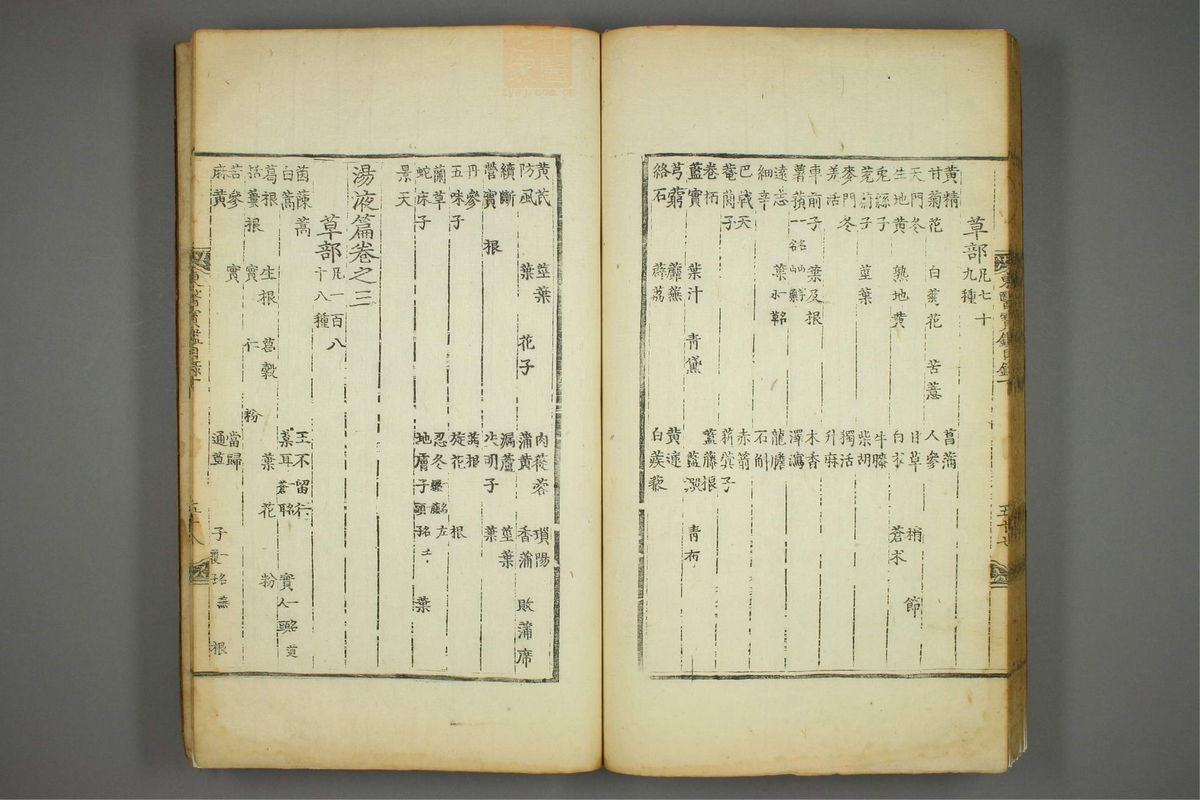 草部凡七十九種
黃精 菖蒲
甘菊花 白菊花 苦薏 人參
天門冬 甘草 梢 節
生地黃 熟地黃 白朮 蒼朮
兎絲子 牛膝
茺蔚子 莖葉 柴胡
麥門冬 獨活
羌活 升麻
車前子 葉及根 木香
薯蕷一名山藥 澤瀉
遠志 葉小草名 龍膽
細辛 石斛
巴戟天 赤箭
菴䕡子 菥蓂子
卷栢
藍實 葉汁 青黛 藍澱 青布
芎藭 蘼蕪 黃連
絡石 薜荔 白蒺藜
東醫寶鑑目錄下
五十七
黃芪 莖葉 肉蓯蓉 瑣陽
防風 葉 花子 蒲黃 香蒲 敗蒲席
續斷 漏蘆 莖葉
營實 根 决明子 葉
丹參
五味子 旋花 根
蘭草 忍冬
蛇床子 地膚子 葉
景天
湯液篇卷之三
草部凡一百八十八種
茵蔯蒿 王不留行
白蒿 葈耳 蒼耳 實
葛根 生根 葛穀 葉 花 粉
括蔞根 實 仁 粉
苦參 實 當歸
麻黃 通草 子 根
東醫寶鑑目錄下
五十八